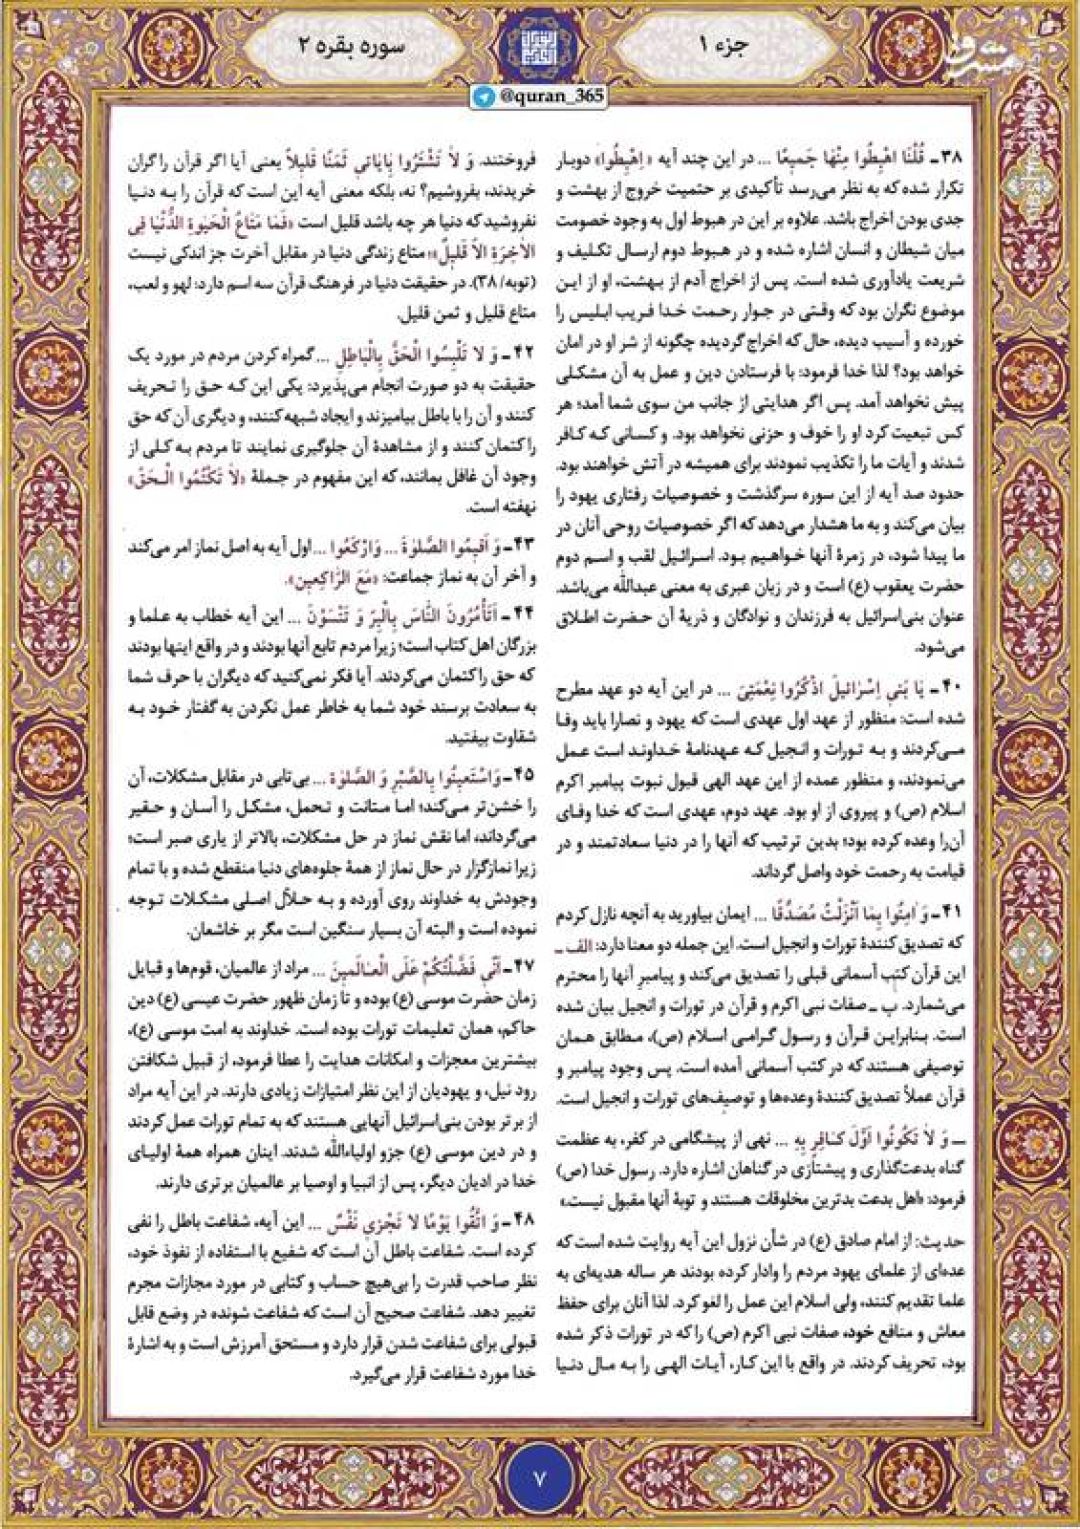 جزء ۱
سوره بقره ۲
@quran_365
۳۸ـ قُلْنَا اهْبِطُوا مِنْهَا جَمِیعًا ... در این چند آیه «اِهْبِطُوا» دوبار
تکرار شده که به نظر می‌رسد تأکیدی بر حتمیت خروج از بهشت و
جدی بودن اخراج باشد. علاوه بر این در هبوط اول به وجود خصومت
میان شیطان و انسان اشاره شده و در هبوط دوم ارسال تکلیف و
شریعت یادآوری شده است. پس از اخراج آدم از بهشت، او از این
موضوع نگران بود که وقتی در جوار رحمت خدا فریب ابلیس را
خورده و آسیب دیده، حال که اخراج گردیده چگونه از شر او در امان
خواهد بود؟ لذا خدا فرمود: با فرستادن دین و عمل به آن مشکلی
پیش نخواهد آمد. پس اگر هدایتی از جانب من سوی شما آمد؛ هر
کس تبعیت کرد او را خوف و حزنی نخواهد بود. و کسانی که کافر
شدند و آیات ما را تکذیب نمودند برای همیشه در آتش خواهند بود.
حدود صد آیه از این سوره سرگذشت و خصوصیات رفتاری یهود را
بیان می‌کند و به ما هشدار می‌دهد که اگر خصوصیات روحی آنان در
ما پیدا شود، در زمرهٔ آنها خواهیم بود. اسرائیل لقب و اسم دوم
حضرت یعقوب (ع) است و در زبان عبری به معنی عبدالله می‌باشد.
عنوان بنی‌اسرائیل به فرزندان و نوادگان و ذریهٔ آن حضرت اطلاق
می‌شود.
۴۰ـ یَا بَنِی اِسْرَائِیلَ اذْکُرُوا نِعْمَتِیَ ... در این آیه دو عهد مطرح
شده است: منظور از عهد اول عهدی است که یهود و نصارا باید وفا
می‌کردند و به تورات و انجیل که عهدنامهٔ خداوند است عمل
می‌نمودند، و منظور عمده از این عهد الهی قبول نبوت پیامبر اکرم
اسلام (ص) و پیروی از او بود. عهد دوم، عهدی است که خدا وفای
آن‌را وعده کرده بود؛ بدین ترتیب که آنها را در دنیا سعادتمند و در
قیامت به رحمت خود واصل گرداند.
۴۱ـ وَ اٰمِنُوا بِمَا اَنْزَلْتُ مُصَدِّقًا ... ایمان بیاورید به آنچه نازل کردم
که تصدیق کنندهٔ تورات و انجیل است. این جمله دو معنا دارد: الف ـ
این قرآن کتب آسمانی قبلی را تصدیق می‌کند و پیامبرِ آنها را محترم
می‌شمارد. ب ـ صفات نبی اکرم و قرآن در تورات و انجیل بیان شده
است. بنابراین قرآن و رسول گرامی اسلام (ص)، مطابق همان
توصیفی هستند که در کتب آسمانی آمده است. پس وجود پیامبر و
قرآن عملاً تصدیق کنندهٔ وعده‌ها و توصیف‌های تورات و انجیل است.
ــ وَ لاٰ تَکُونُوا اَوَّلَ کَافِرٍ بِهِ ... نهی از پیشگامی در کفر، به عظمت
گناه بدعت‌گذاری و پیشتازی در گناهان اشاره دارد. رسول خدا (ص)
فرمود: «اهل بدعت بدترین مخلوقات هستند و توبهٔ آنها مقبول نیست.»
حدیث: از امام صادق (ع) در شأن نزول این آیه روایت شده است که
عده‌ای از علمای یهود مردم را وادار کرده بودند هر ساله هدیه‌ای به
علما تقدیم کنند، ولی اسلام این عمل را لغو کرد. لذا آنان برای حفظ
معاش و منافع خود، صفات نبی اکرم (ص) را که در تورات ذکر شده
بود، تحریف کردند. در واقع با این کار، آیات الهی را به مال دنیا
فروختند. وَ لاٰ تَشْتَرُوا بِاٰیَاتِی ثَمَنًا قَلِیلاً یعنی آیا اگر قرآن را گران
خریدند، بفروشیم؟ نه، بلکه معنی آیه این است که قرآن را به دنیا
نفروشید که دنیا هر چه باشد قلیل است «فَمَا مَتَاعُ الْحَیٰوةِ الدُّنْیَا فِی
الْاٰخِرَةِ اِلاَّ قَلِیلٌ»؛ متاع زندگی دنیا در مقابل آخرت جز اندکی نیست
(توبه/۳۸). در حقیقت دنیا در فرهنگ قرآن سه اسم دارد: لهو و لعب،
متاع قلیل و ثمن قلیل.
۴۲ـ وَ لا تَلْبِسُوا الْحَقَّ بِالْبَاطِلِ ... گمراه کردن مردم در مورد یک
حقیقت به دو صورت انجام می‌پذیرد: یکی این که حق را تحریف
کنند و آن را با باطل بیامیزند و ایجاد شبهه کنند، و دیگری آن که حق
را کتمان کنند و از مشاهدهٔ آن جلوگیری نمایند تا مردم به کلی از
وجود آن غافل بمانند، که این مفهوم در جملهٔ «لاٰ تَکْتُمُوا الْحَقَّ»
نهفته است.
۴۳ـ وَ اَقِیمُوا الصَّلوٰةَ ... وَارْکَعُوا ... اول آیه به اصل نماز امر می‌کند
و آخر آن به نماز جماعت: «مَعَ الرَّاکِعِینَ».
۴۴ـ اَتَأْمُرُونَ النَّاسَ بِالْبِرِّ وَ تَنْسَوْنَ ... این آیه خطاب به علما و
بزرگان اهل کتاب است؛ زیرا مردم تابع آنها بودند و در واقع اینها بودند
که حق را کتمان می‌کردند. آیا فکر نمی‌کنید که دیگران با حرف شما
به سعادت برسند خود شما به خاطر عمل نکردن به گفتار خود به
شقاوت بیفتید.
۴۵ـ وَاسْتَعِینُوا بِالصَّبْرِ وَ الصَّلوٰةِ ... بی‌تابی در مقابل مشکلات، آن
را خشن‌تر می‌کند؛ اما متانت و تحمل، مشکل را آسان و حقیر
می‌گرداند، اما نقش نماز در حل مشکلات، بالاتر از یاری صبر است؛
زیرا نمازگزار در حال نماز از همهٔ جلوه‌های دنیا منقطع شده و با تمام
وجودش به خداوند روی آورده و به حلّال اصلی مشکلات توجه
نموده است و البته آن بسیار سنگین است مگر بر خاشعان.
۴۷ـ اَنِّی فَضَّلْتُکُمْ عَلَی الْعَالَمِینَ ... مراد از عالمیان، قوم‌ها و قبایل
زمان حضرت موسی (ع) بوده و تا زمان ظهور حضرت عیسی (ع) دین
حاکم، همان تعلیمات تورات بوده است. خداوند به امت موسی (ع)،
بیشترین معجزات و امکانات هدایت را عطا فرمود، از قبیل شکافتن
رود نیل، و یهودیان از این نظر امتیازات زیادی دارند. در این آیه مراد
از برتر بودن بنی‌اسرائیل آنهایی هستند که به تمام تورات عمل کردند
و در دین موسی (ع) جزو اولیاءالله شدند. اینان همراه همهٔ اولیای
خدا در ادیان دیگر، پس از انبیا و اوصیا بر عالمیان برتری دارند.
۴۸ـ وَ اتَّقُوا یَوْمًا لا تَجْزِی نَفْسٌ ... این آیه، شفاعت باطل را نفی
کرده است. شفاعت باطل آن است که شفیع با استفاده از نفوذ خود،
نظر صاحب قدرت را بی‌هیچ حساب و کتابی در مورد مجازات مجرم
تغییر دهد. شفاعت صحیح آن است که شفاعت شونده در وضع قابل
قبولی برای شفاعت شدن قرار دارد و مستحق آمرزش است و به اشارهٔ
خدا مورد شفاعت قرار می‌گیرد.
۷